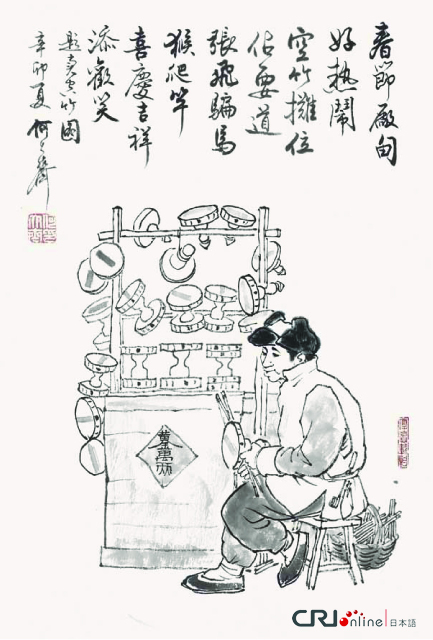 春節廠甸
好熱鬧
空竹攤位
佔要道
張飛騙馬
猴爬竿
喜慶吉祥
添歡笑
題賣空竹圖
辛卯夏 何大齊
CRI online 日本語